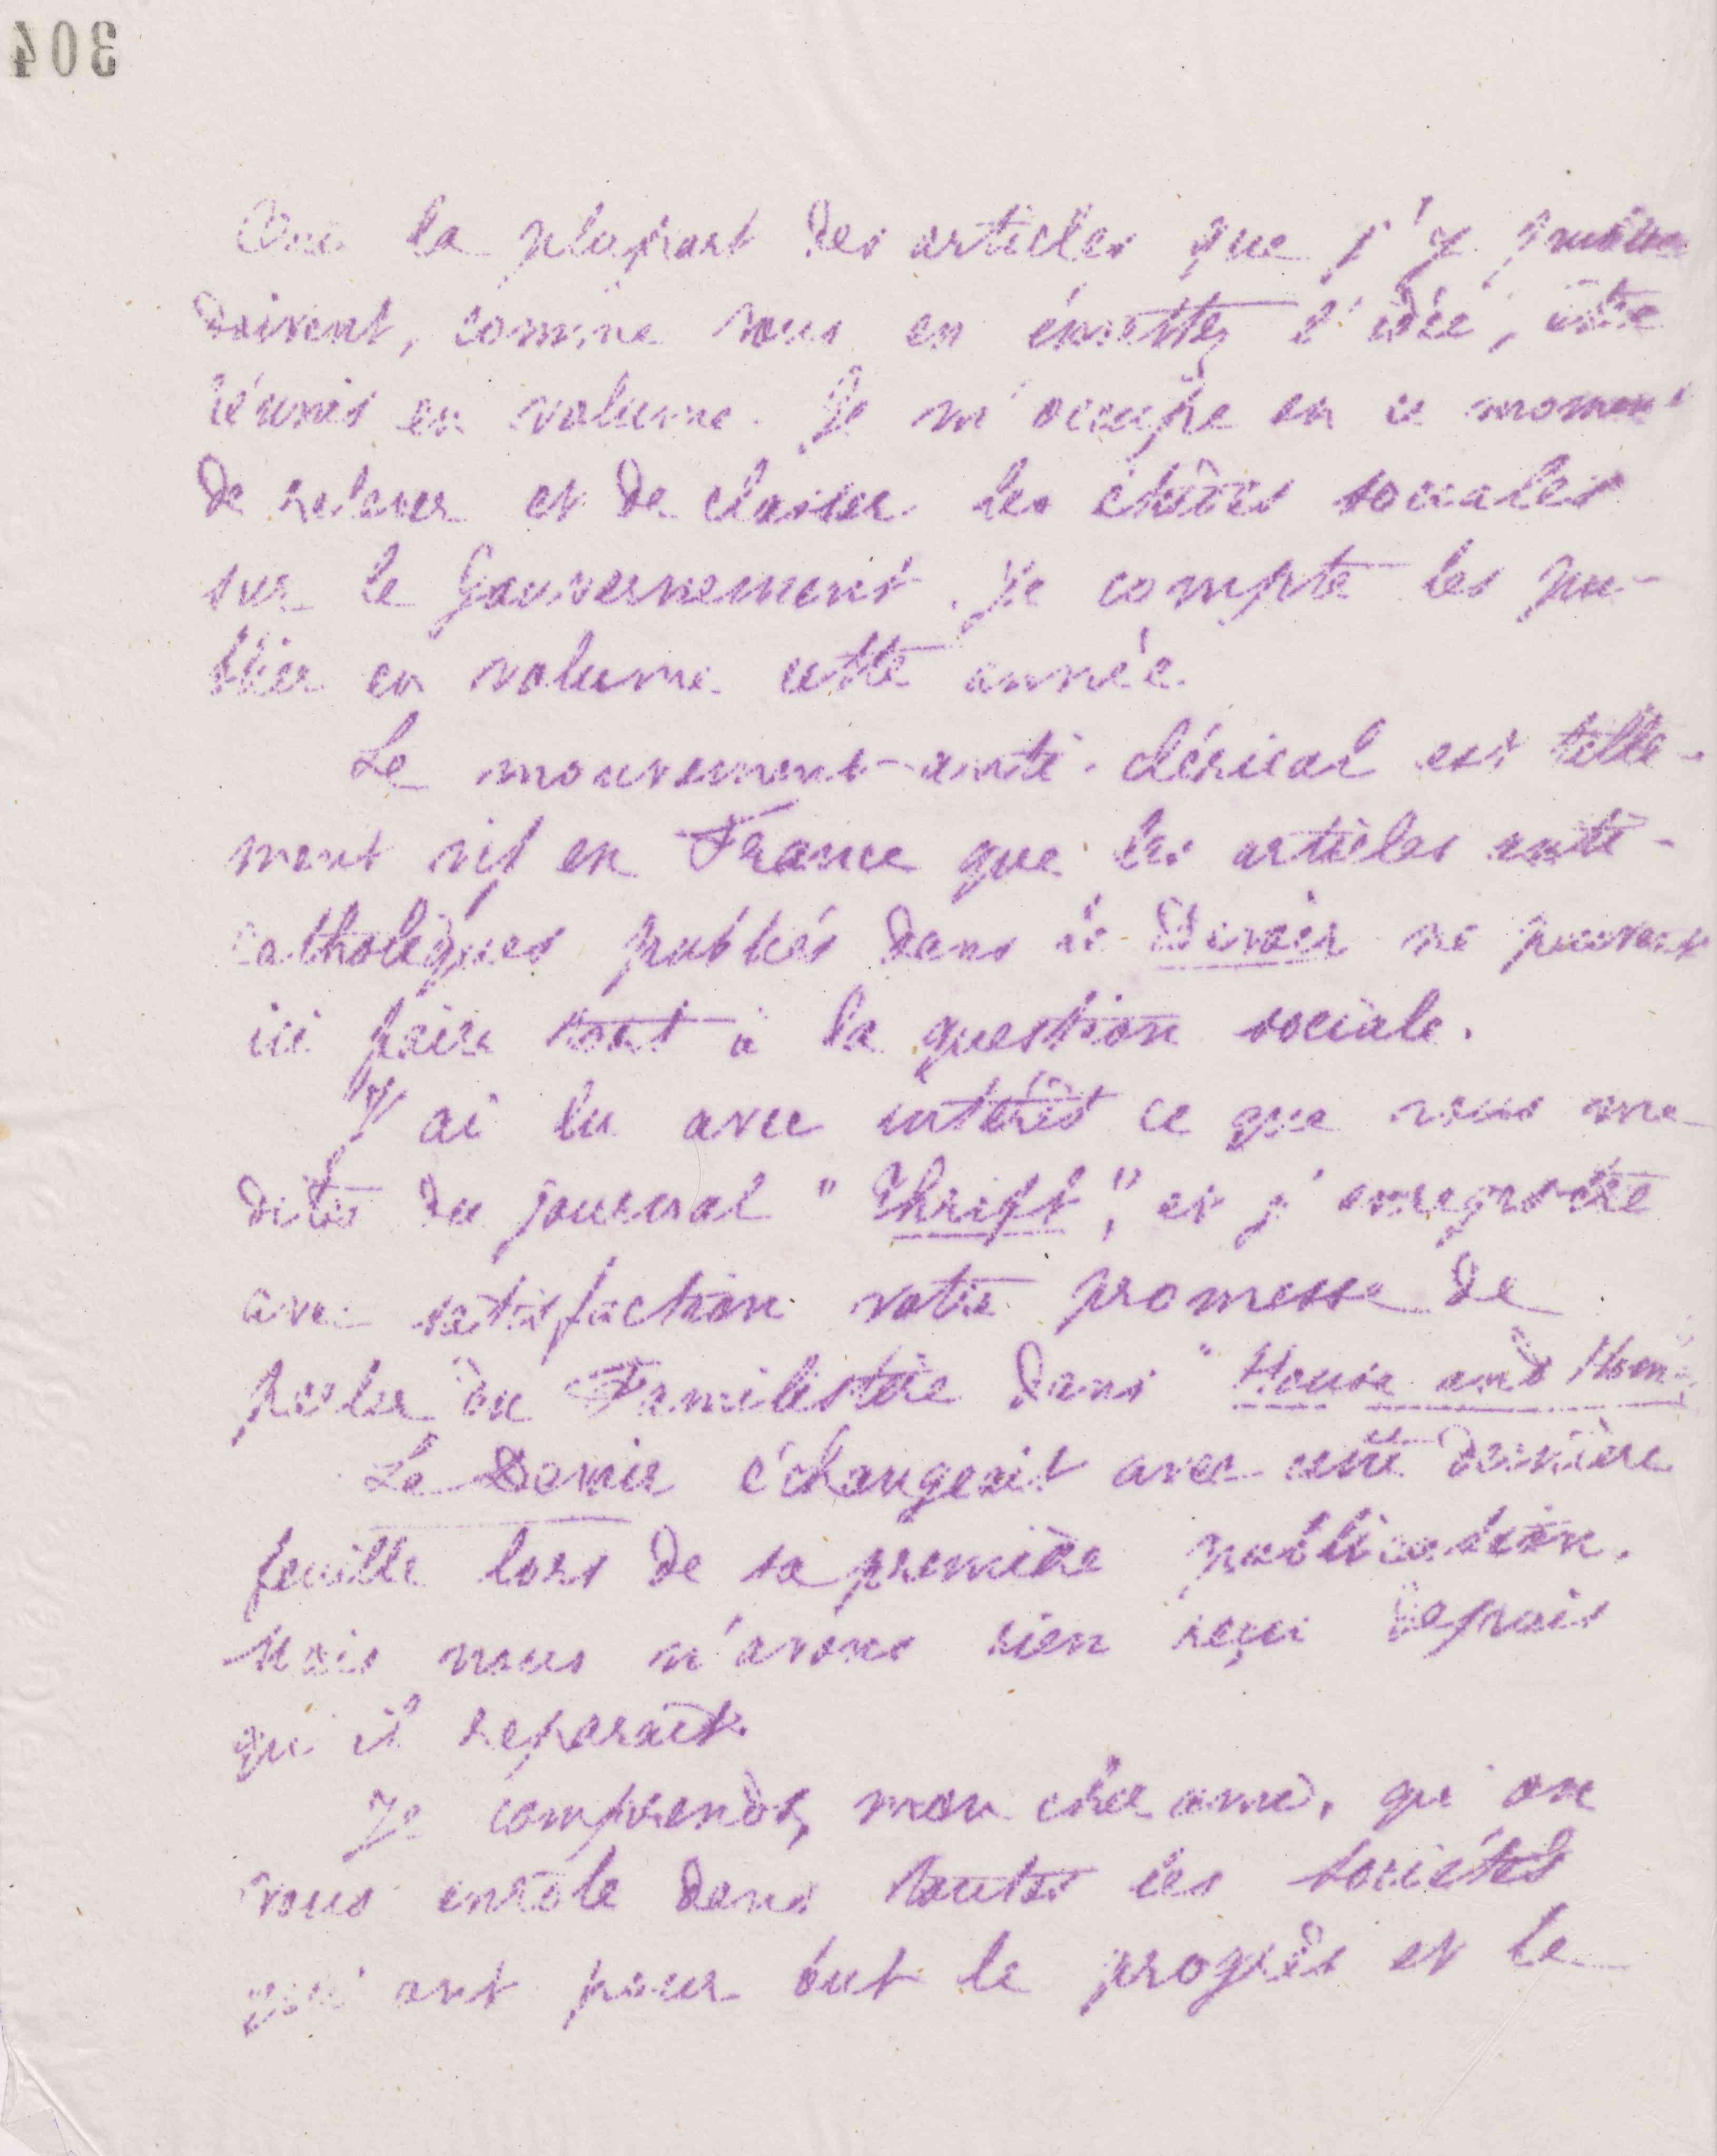 304
Oui la plupart des articles que j'y publie
doivent, comme vous en émettez l'idée, être
réunis en volume. Je m'occupe en ce moment
de relever et de classer les études sociales
sur le Gouvernement. Je compte les pu-
blier en volume cette année.
Le mouvement anti-clérical est telle-
ment vif en France que les articles anti-
catholiques publiés dans le Devoir ne peuvent
ici faire tort à la question sociale.
J'ai lu avec intérêt ce que vous me
dites du journal "Thrift", et j'enregistre
avec satisfaction votre promesse de
parler du Familistère dans "House and Home
Le Devoir échangeait avec cette dernière
feuille lors de sa première publication.
Mais nous n'avons rien reçu depuis
qu'il reparait.
Je comprends, mon cher ami, qu'on
vous enrôle dans toutes les sociétés
qui ont pour but le progrès et le